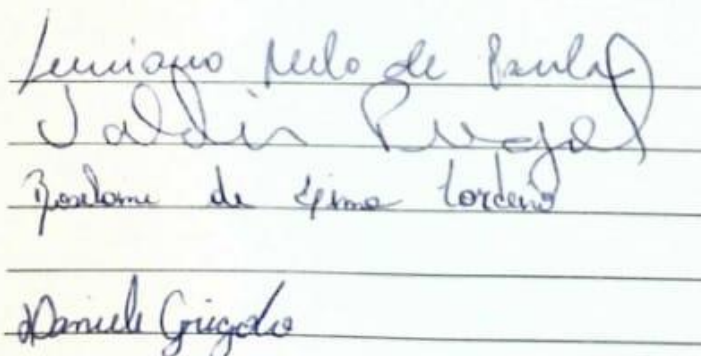 Luciano Melo de Paula
Valdir Pugal
Roselame de Lima Cordeiro
Daniele Grigolo